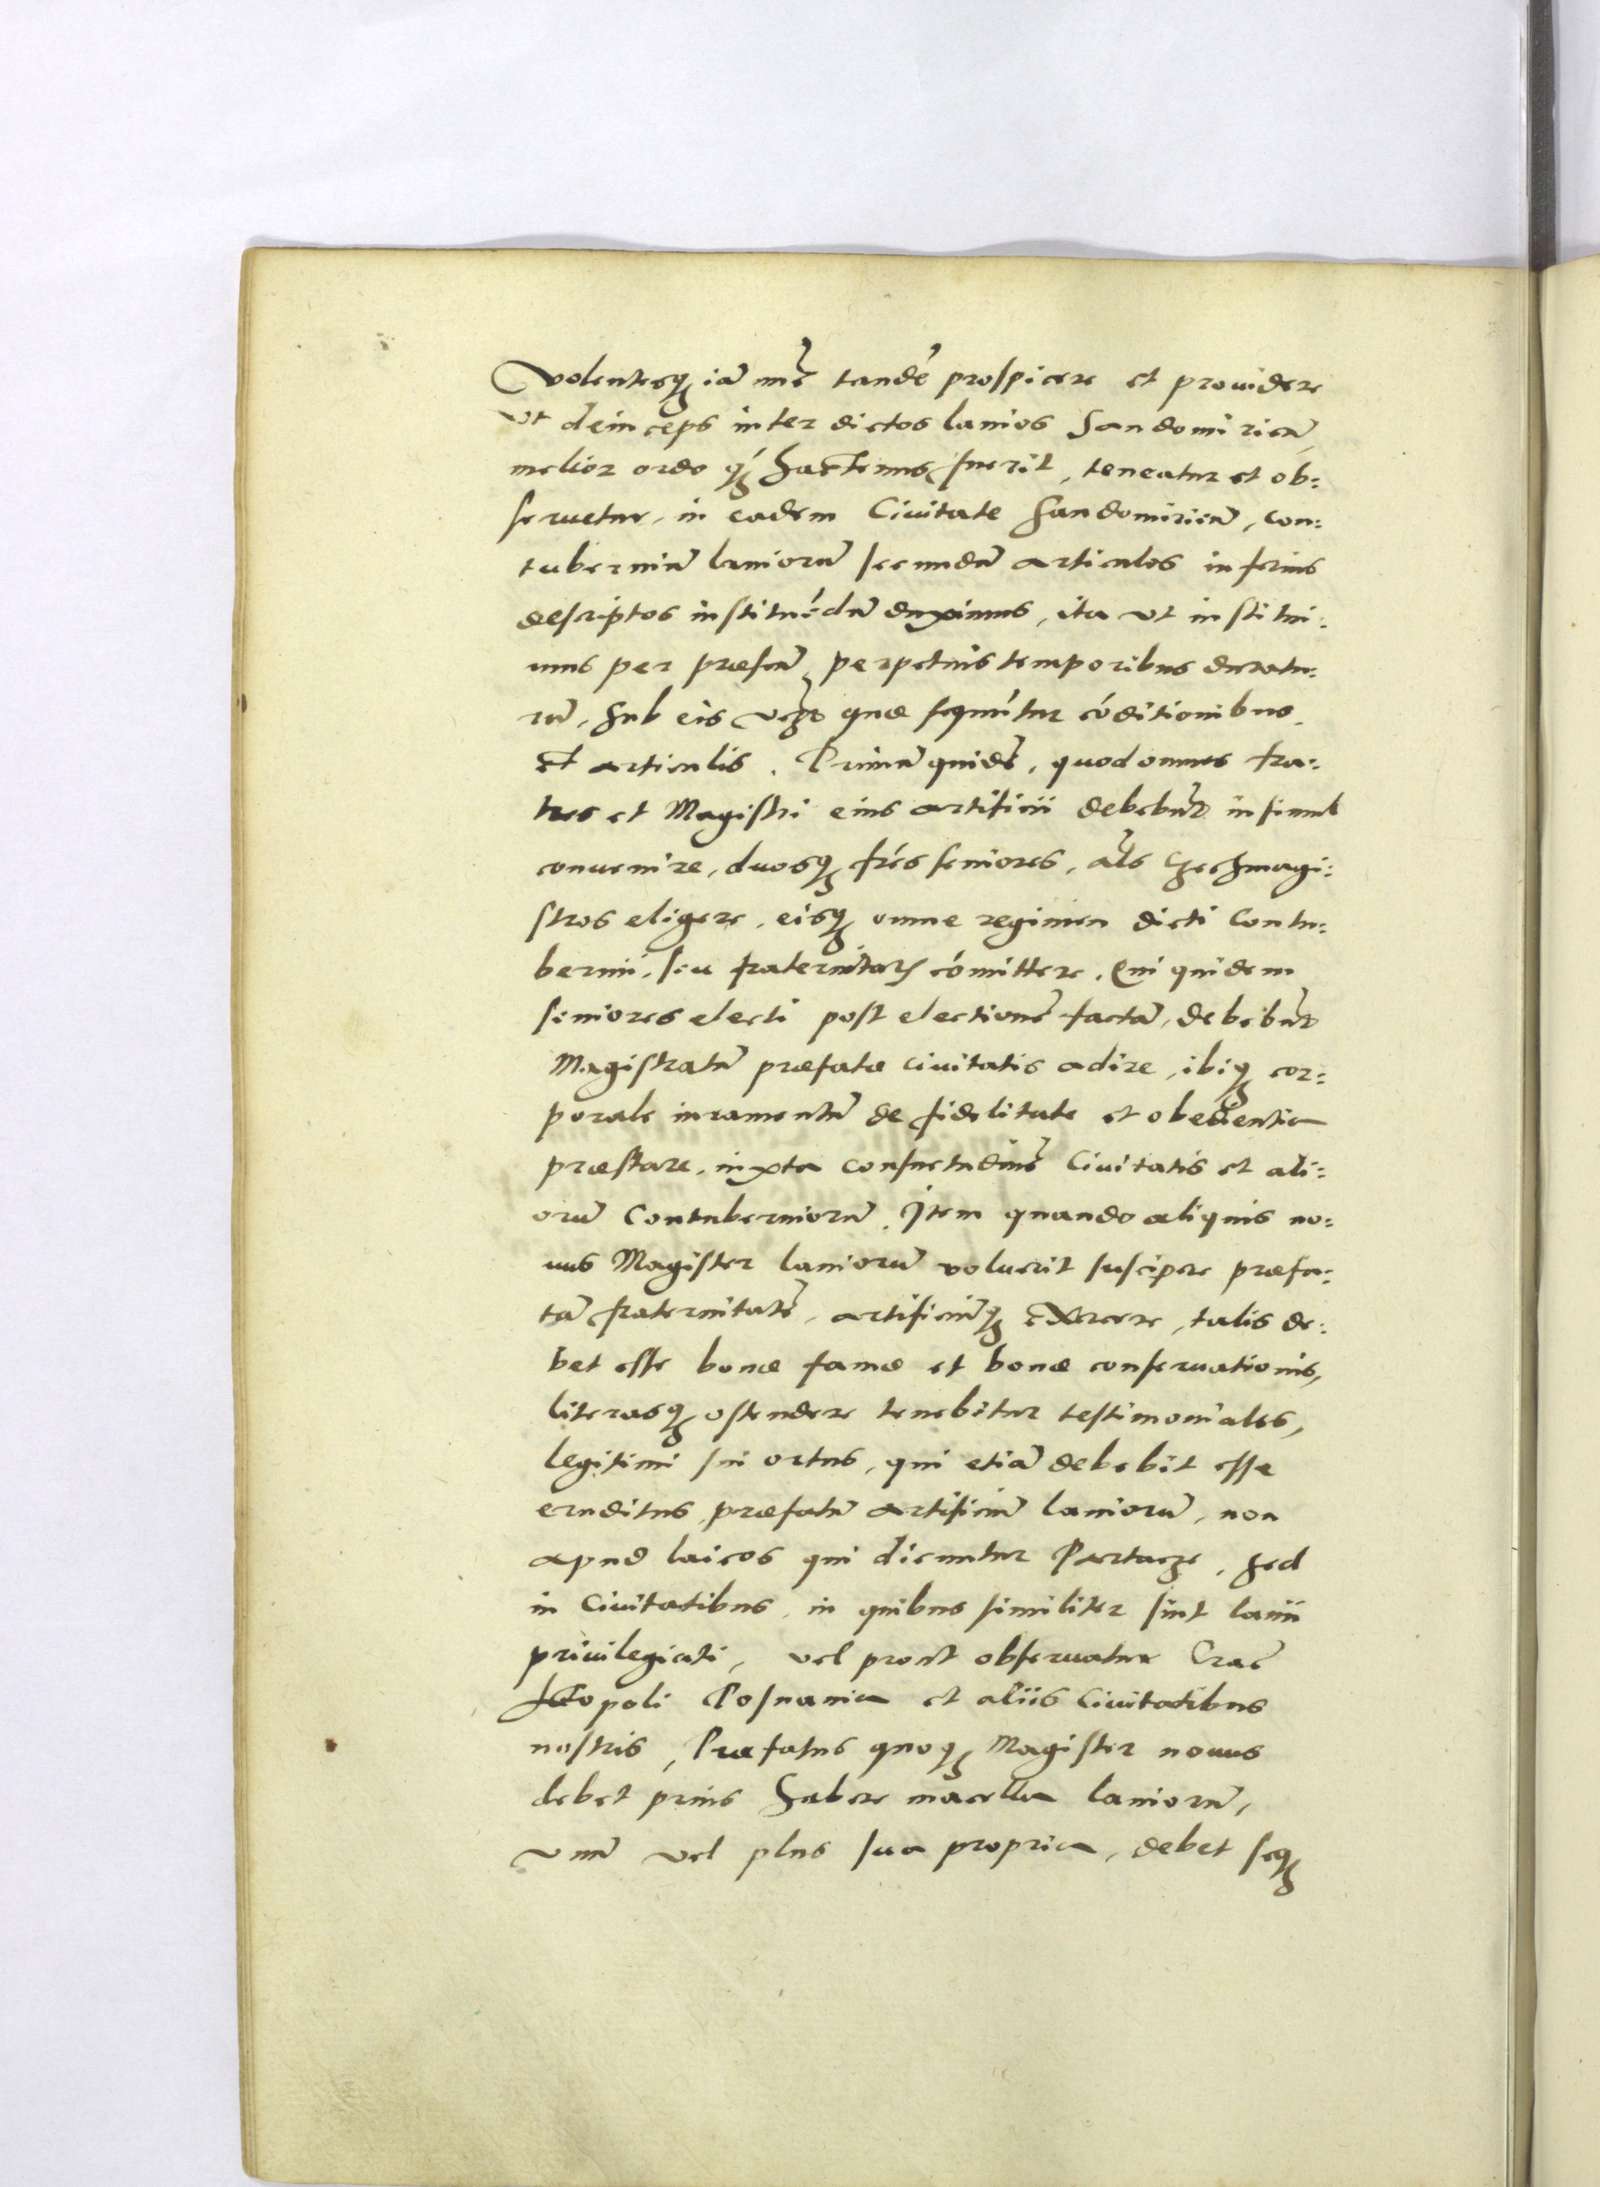 Volentesq₃ iā nūc tandē prospicere et prouidere
vt deinceps inter dictos lanios Sandomirieñ,
melior ordo q̃ hactenus fuerit, teneatur et ob:
seruetur, in eadem Ciuitate Sandomirieñ, con:
tuberniū laniorū secundū articulos inferius
descriptos instituēdū duximus, ita vt institui:
mus per præsen̄, perpetuis temporibus duratu:
rū, sub eis vcꝫ quæ sequūtur cōditionibus
et articulis. Primū quidē, quod omnes fra:
tres et Magistri eius artificii debebūt insimul
conuenire, duosq₃ frēs seniores, als czechmagi:
stros eligere, eisq₃ omne regimen dicti Contu:
bernii, seu fraternitatis cōmittere. Qui quidem
seniores electi post electionē factā, debebūt
Magistratū præfatæ ciuitatis adire, ibiq₃ cor:
porale iuramentū de fidelitate et obedientia
præstare, iuxta consuetudinē Ciuitatis et ali:
orū Contuberniorū. Item quando aliquis no:
uus Magister laniorū voluerit suscipere præfa:
tā fraternitatē, artificiūq₃ exercere, talis de:
bet esse bonæ famæ et bonæ conseruationis,
literasq₃ ostendere tenebitur testimoniales,
legitimi sui ortus, qui etiā debebit esse
eruditus præfatū artificiū laniorū, non
apud laicos qui dicuntur Partacze, sed
in Ciuitatibus, in quibus similiter sint lanii
priuilegiati, vel prout obseruatur Crac̄
Leopoli Posnania et aliis Ciuitatibus
nostris, Præfatus quoq₃ Magister nouus
debet prius habere macella laniorū,
vnū vel plus sua propria, debet seq₃